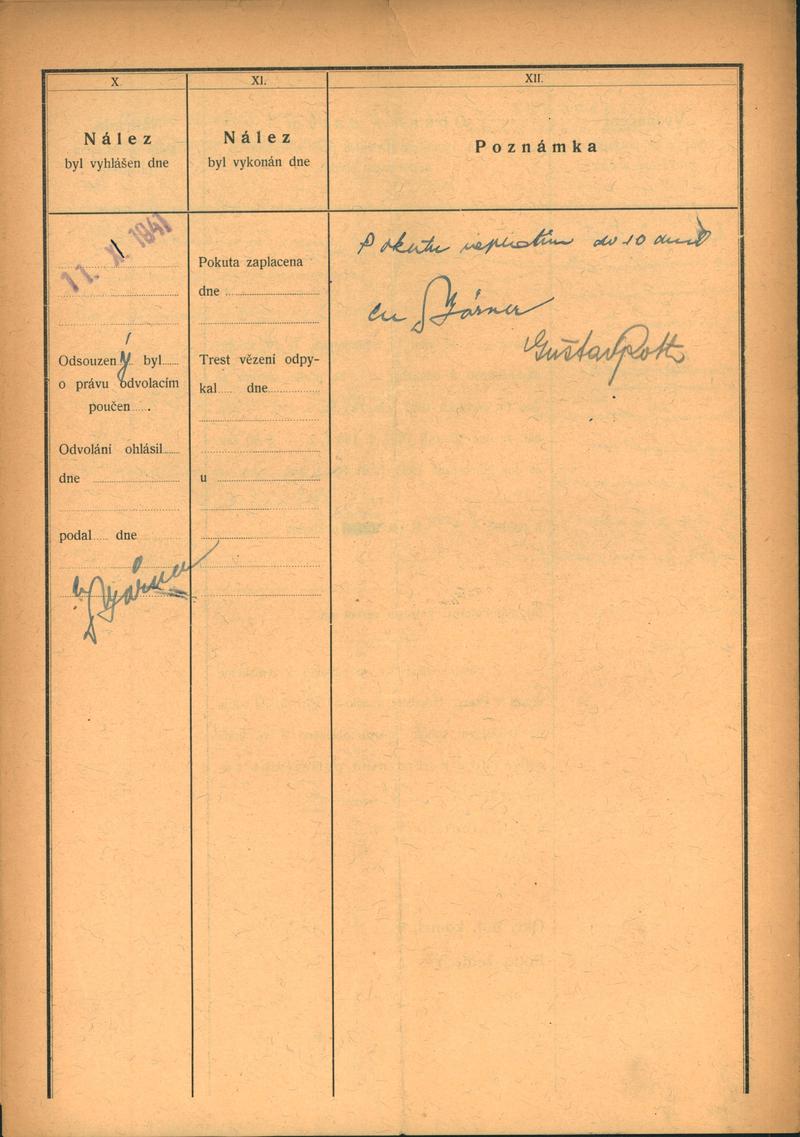 X.
Nález
byl vyhlášen dne
11. X. 1941
Odsouzený byl
o právu odvolacím
poučen
Odvolání ohlásil
dne
podal dne
XI.
Nález
byl vykonán dne
Pokuta zaplacena
dne
Trest vězení odpy-
kal dne
u
XII.
Poznámka
Pokutu do 10 dnů
Gustav Roth